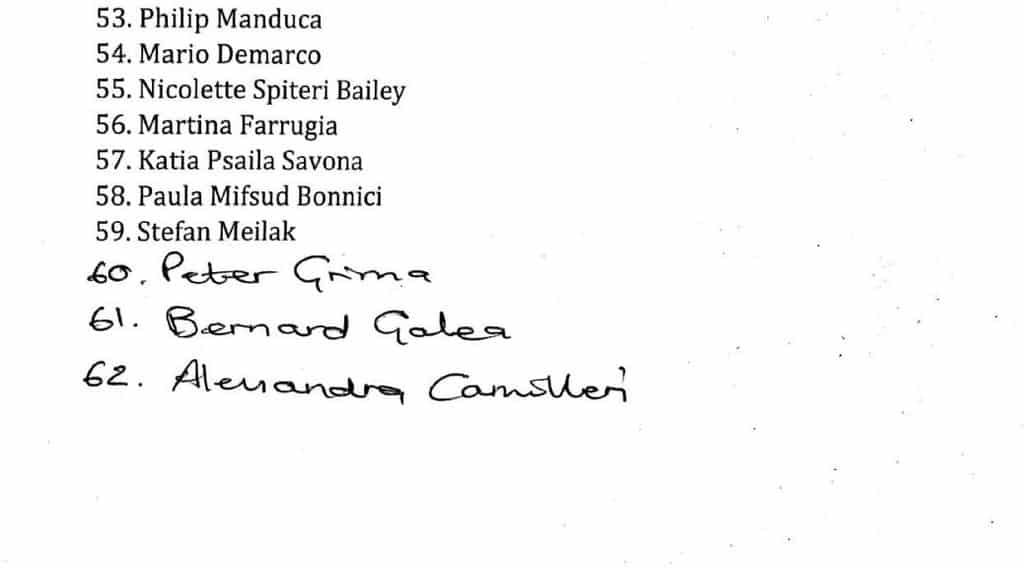 53. Philip Manduca
54. Mario Demarco
55. Nicolette Spiteri Bailey
56. Martina Farrugia
57. Katia Psaila Savona
58. Paula Mifsud Bonnici
59. Stefan Meilak
60. Peter Grima
61. Bernard Galea
62. Alessandra Camilleri